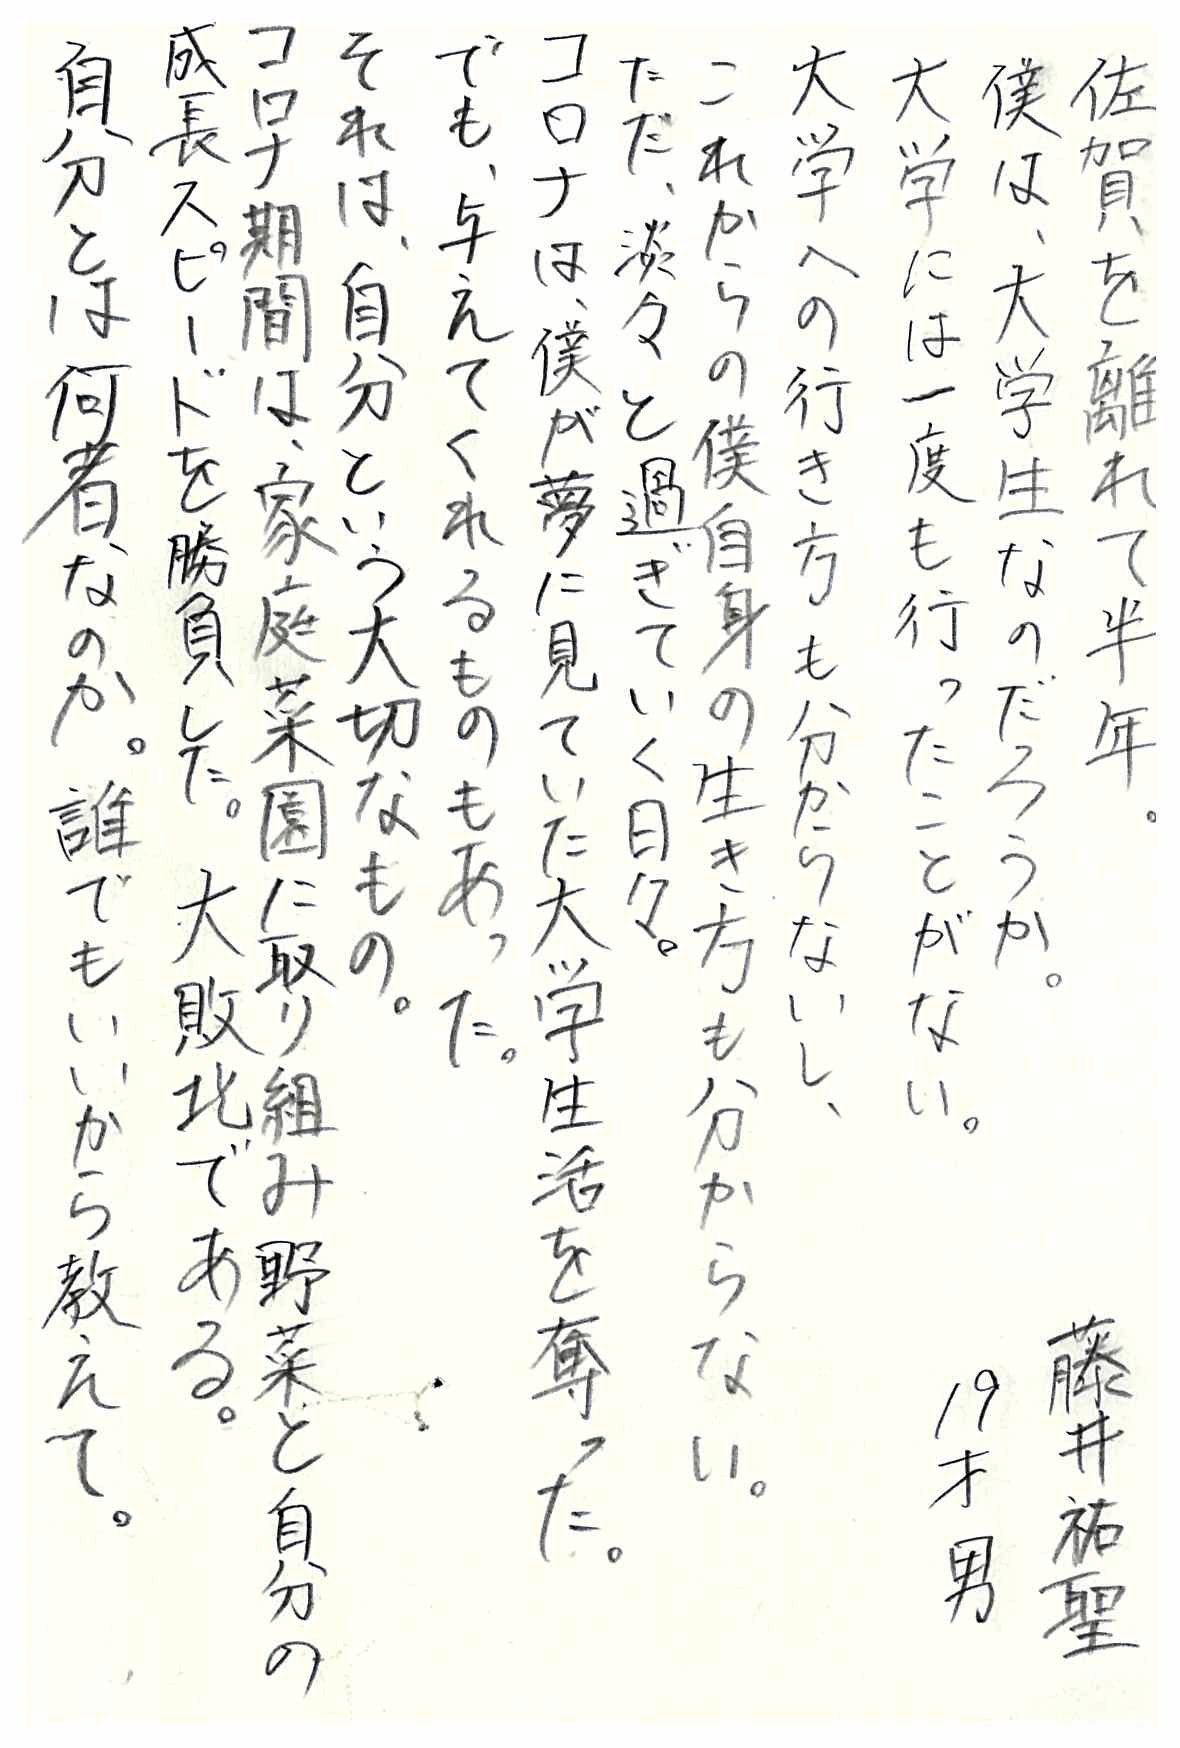 佐賀を離れて半年。
僕は、大学生なのだろうか。
大学には一度も行ったことがない。
大学への行き方も分からないし、
これからの僕自身の生き方も分からない。
ただ、淡々と過ぎていく日々。
コロナは、僕が夢に見ていた大学生活を奪った。
でも、与えてくれるものもあった。
それは、自分という大切なもの。
コロナ期間は、家庭菜園に取り組み野菜と自分の
成長スピードを勝負した。大敗北である。
自分とは何者なのか。誰でもいいから教えて。
藤井祐聖
19才男